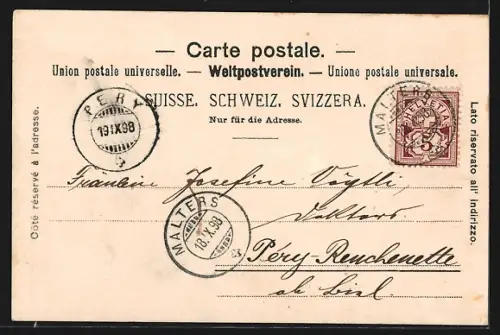 — Carte postale. —
Union postale universelle. — Weltpostverein. — Unione postale universale.
SUISSE. SCHWEIZ. SVIZZERA.
Nur für die Adresse.
Côté réservé à l'adresse.
Lato riservato all' indirizzo.
PERY
19.IX.98
MALTERS
HELVETIA
5
Fräulein Josefine Vögtli
Doktors
MALTERS
18.X.98
Péry-Reuchenette
ob Biel